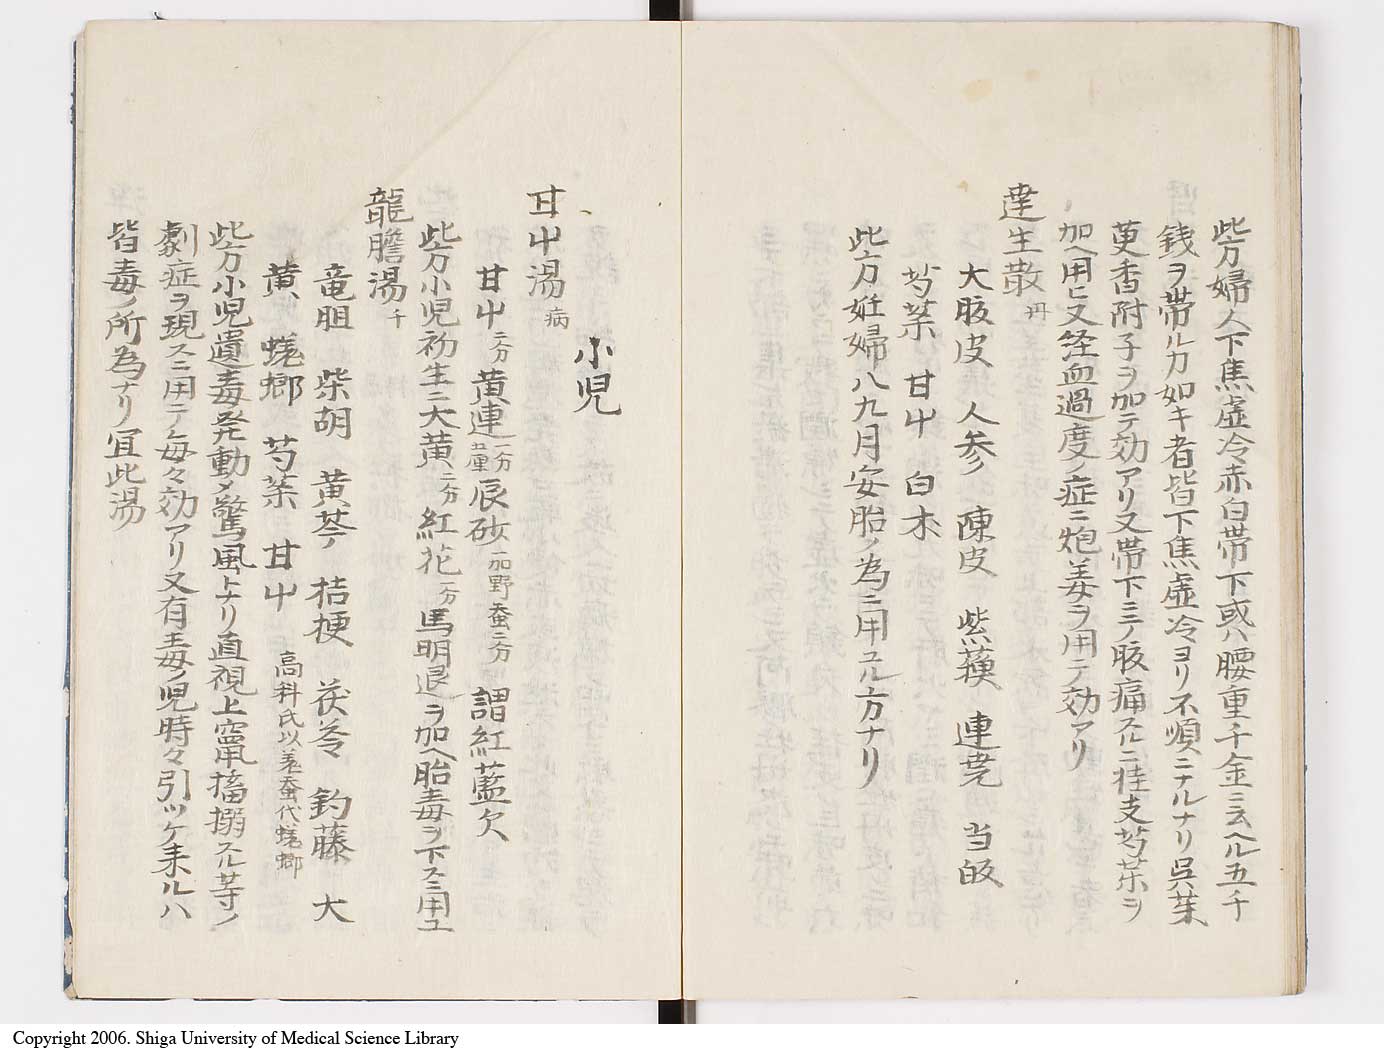 此方婦人下焦虚冷赤白帯下或ハ腰重千金ニ云ヘル五千
銭ヲ帯ルカ如キ者皆下焦虚冷ヨリ不順ニナルナリ呉茱
萸香附子ヲ加テ効アリ又帯下ニノ腹痛スルニ桂支芍薬ヲ
加ヘ用ヒ又経血過度ノ症ニ炮姜ヲ用テ効アリ
達生散 丹
大腹皮 人参 陳皮 紫蘓 連莞 当皈
芍薬 甘屮 白朮
此方妊婦八九月安胎ノ為ニ用ユル方ナリ
小児
甘屮湯 病
甘屮二分 黄連一分五厘 辰砂 一加野蚕二分 謂紅藍欠
此方小児初生ニ大黄二分紅花一分馬明退ヲ加ヘ胎毒ヲ下スニ用ユ
龍膽湯 千
竜胆 柴胡 黄芩 桔梗 茯苓 釣藤 大
黄 蜣螂 芍薬 甘屮 高科氏以姜蚕代蜣螂
此方小児遺毒発動〆驚風トナリ直視上竄搐搦スル等ノ
劇症ヲ現スニ用テ毎々効アリ又有毒ノ児時々引ツケ来ルハ
皆毒ノ所為ナリ冝此湯
Copyright 2006. Shiga University of Medical Science Library